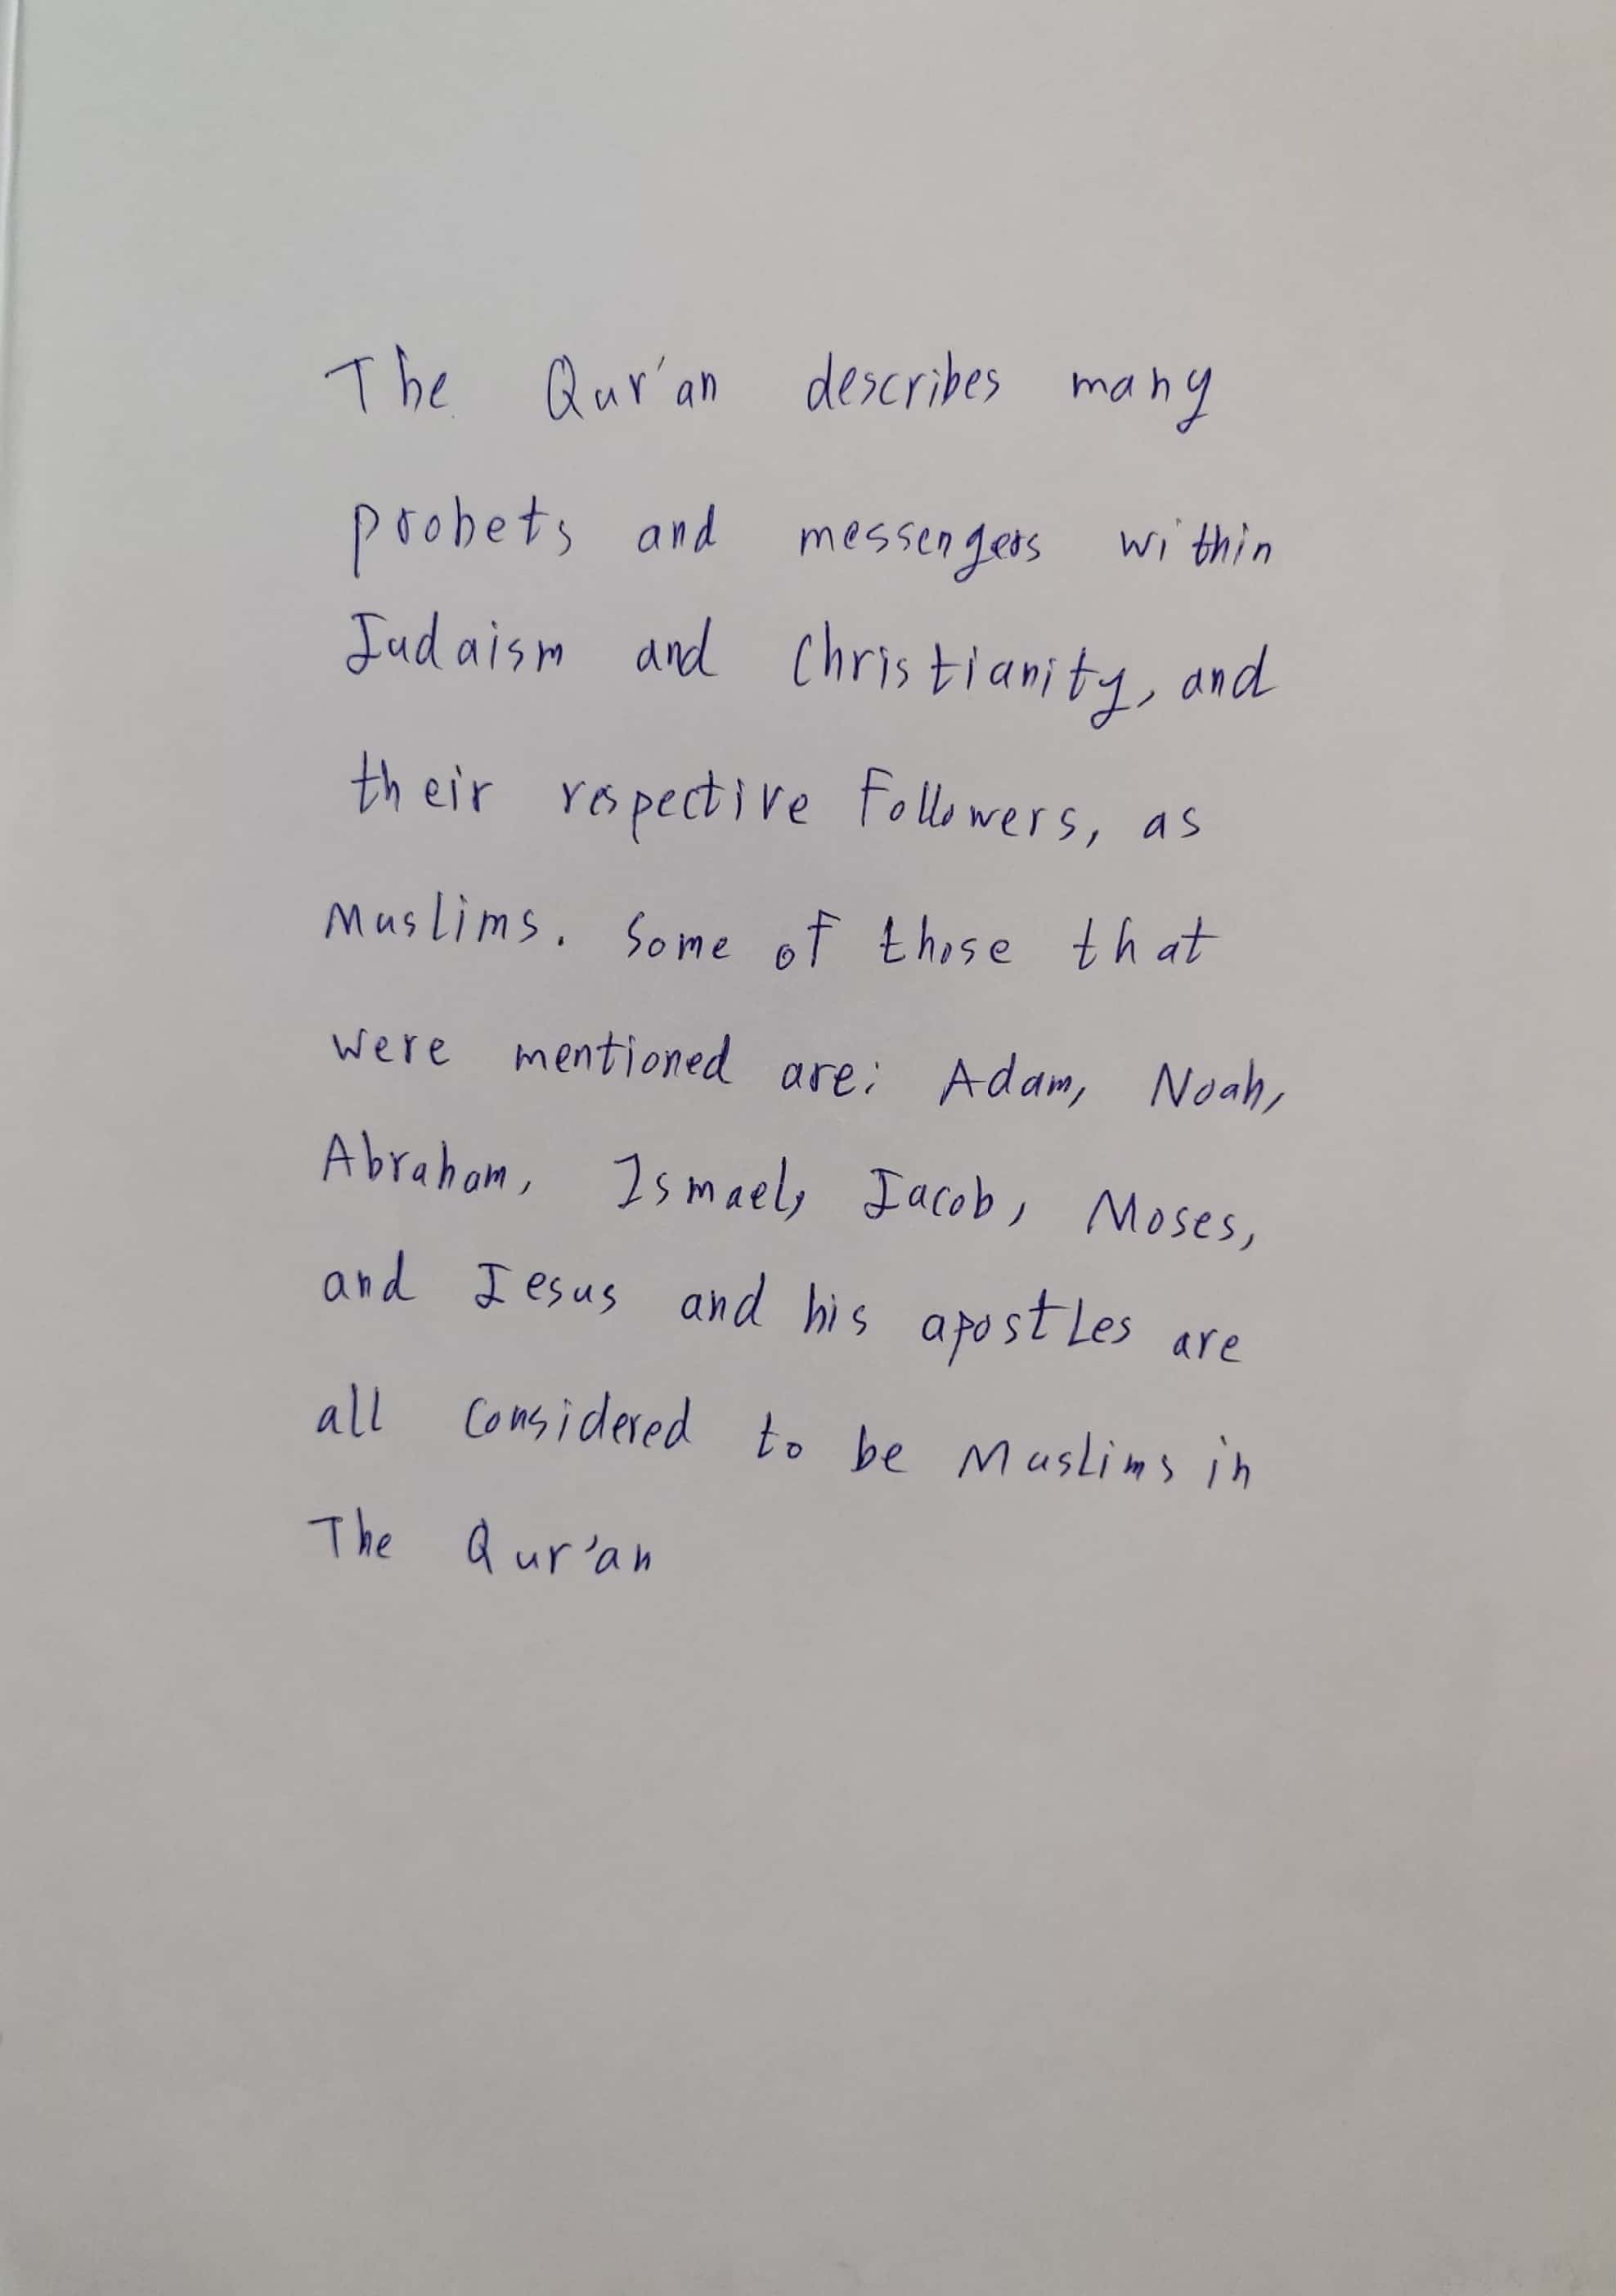 The Qur'an describes many
probets and messengers within
Judaism and Christianity, and
their respective Followers, as
Muslims. Some of those that
were mentioned are: Adam, Noah,
Abraham, Ismael, Jacob, Moses,
and Jesus and his apostles are
all considered to be Muslims in
The Qur'an